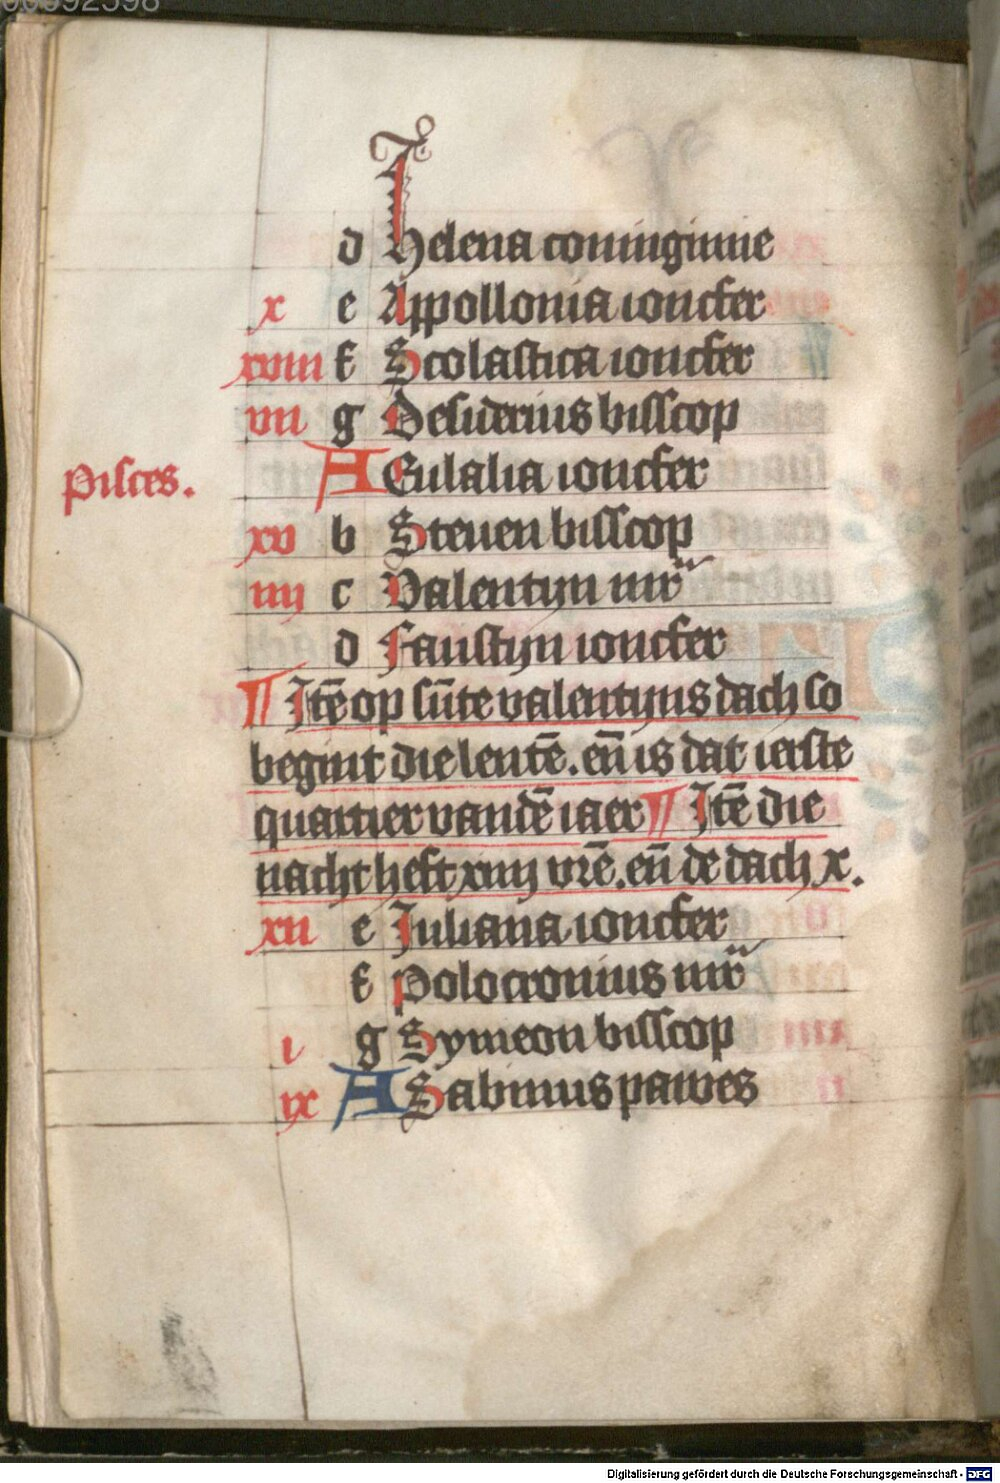 00092598
d Helena coninginne
x e Appollonia ioncfer
xviii f Scolastica ioncfer
vii g Desiderius bisscop
Pisces. A Eulalia ioncfer
xv b Steuen bisscop
iiij c Valentijn mr̃
d Faustijn ioncfer
¶ Itē op sūte valentijns dach so
begint die lentē. eñ is dat ierste
quartier vandē iaer ¶ Itē die
nacht heft xiiij vrē. eñ de dach x.
xii e Iuliana ioncfer
f Polocronius mr̃
i g Symeon bisscop
ix A Sabinus pawes
Digitalisierung gefördert durch die Deutsche Forschungsgemeinschaft - DFG